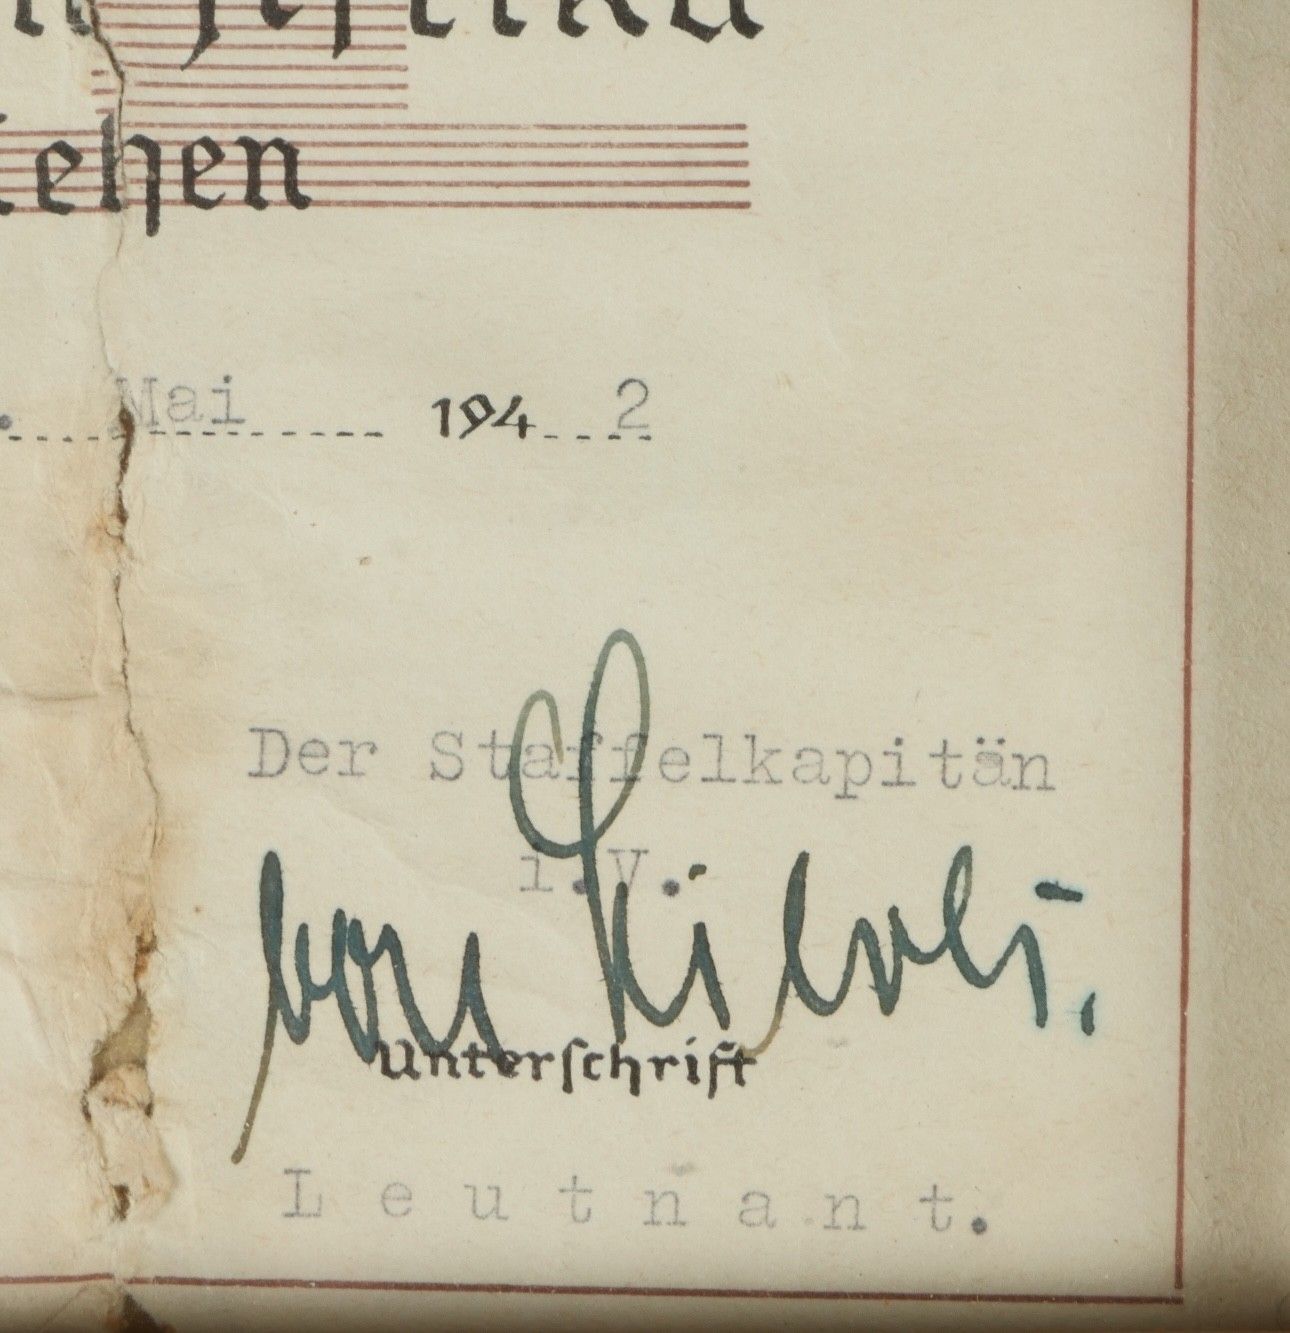 ehen
Mai 194 2
Der Staffelkapitän
i.V.
von
Unterschrift
Leutnant.